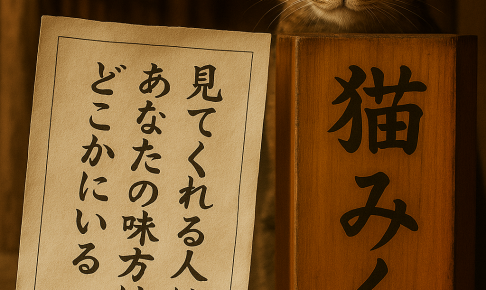 見てくれる人
あなたの味方
どこかにいる
猫み